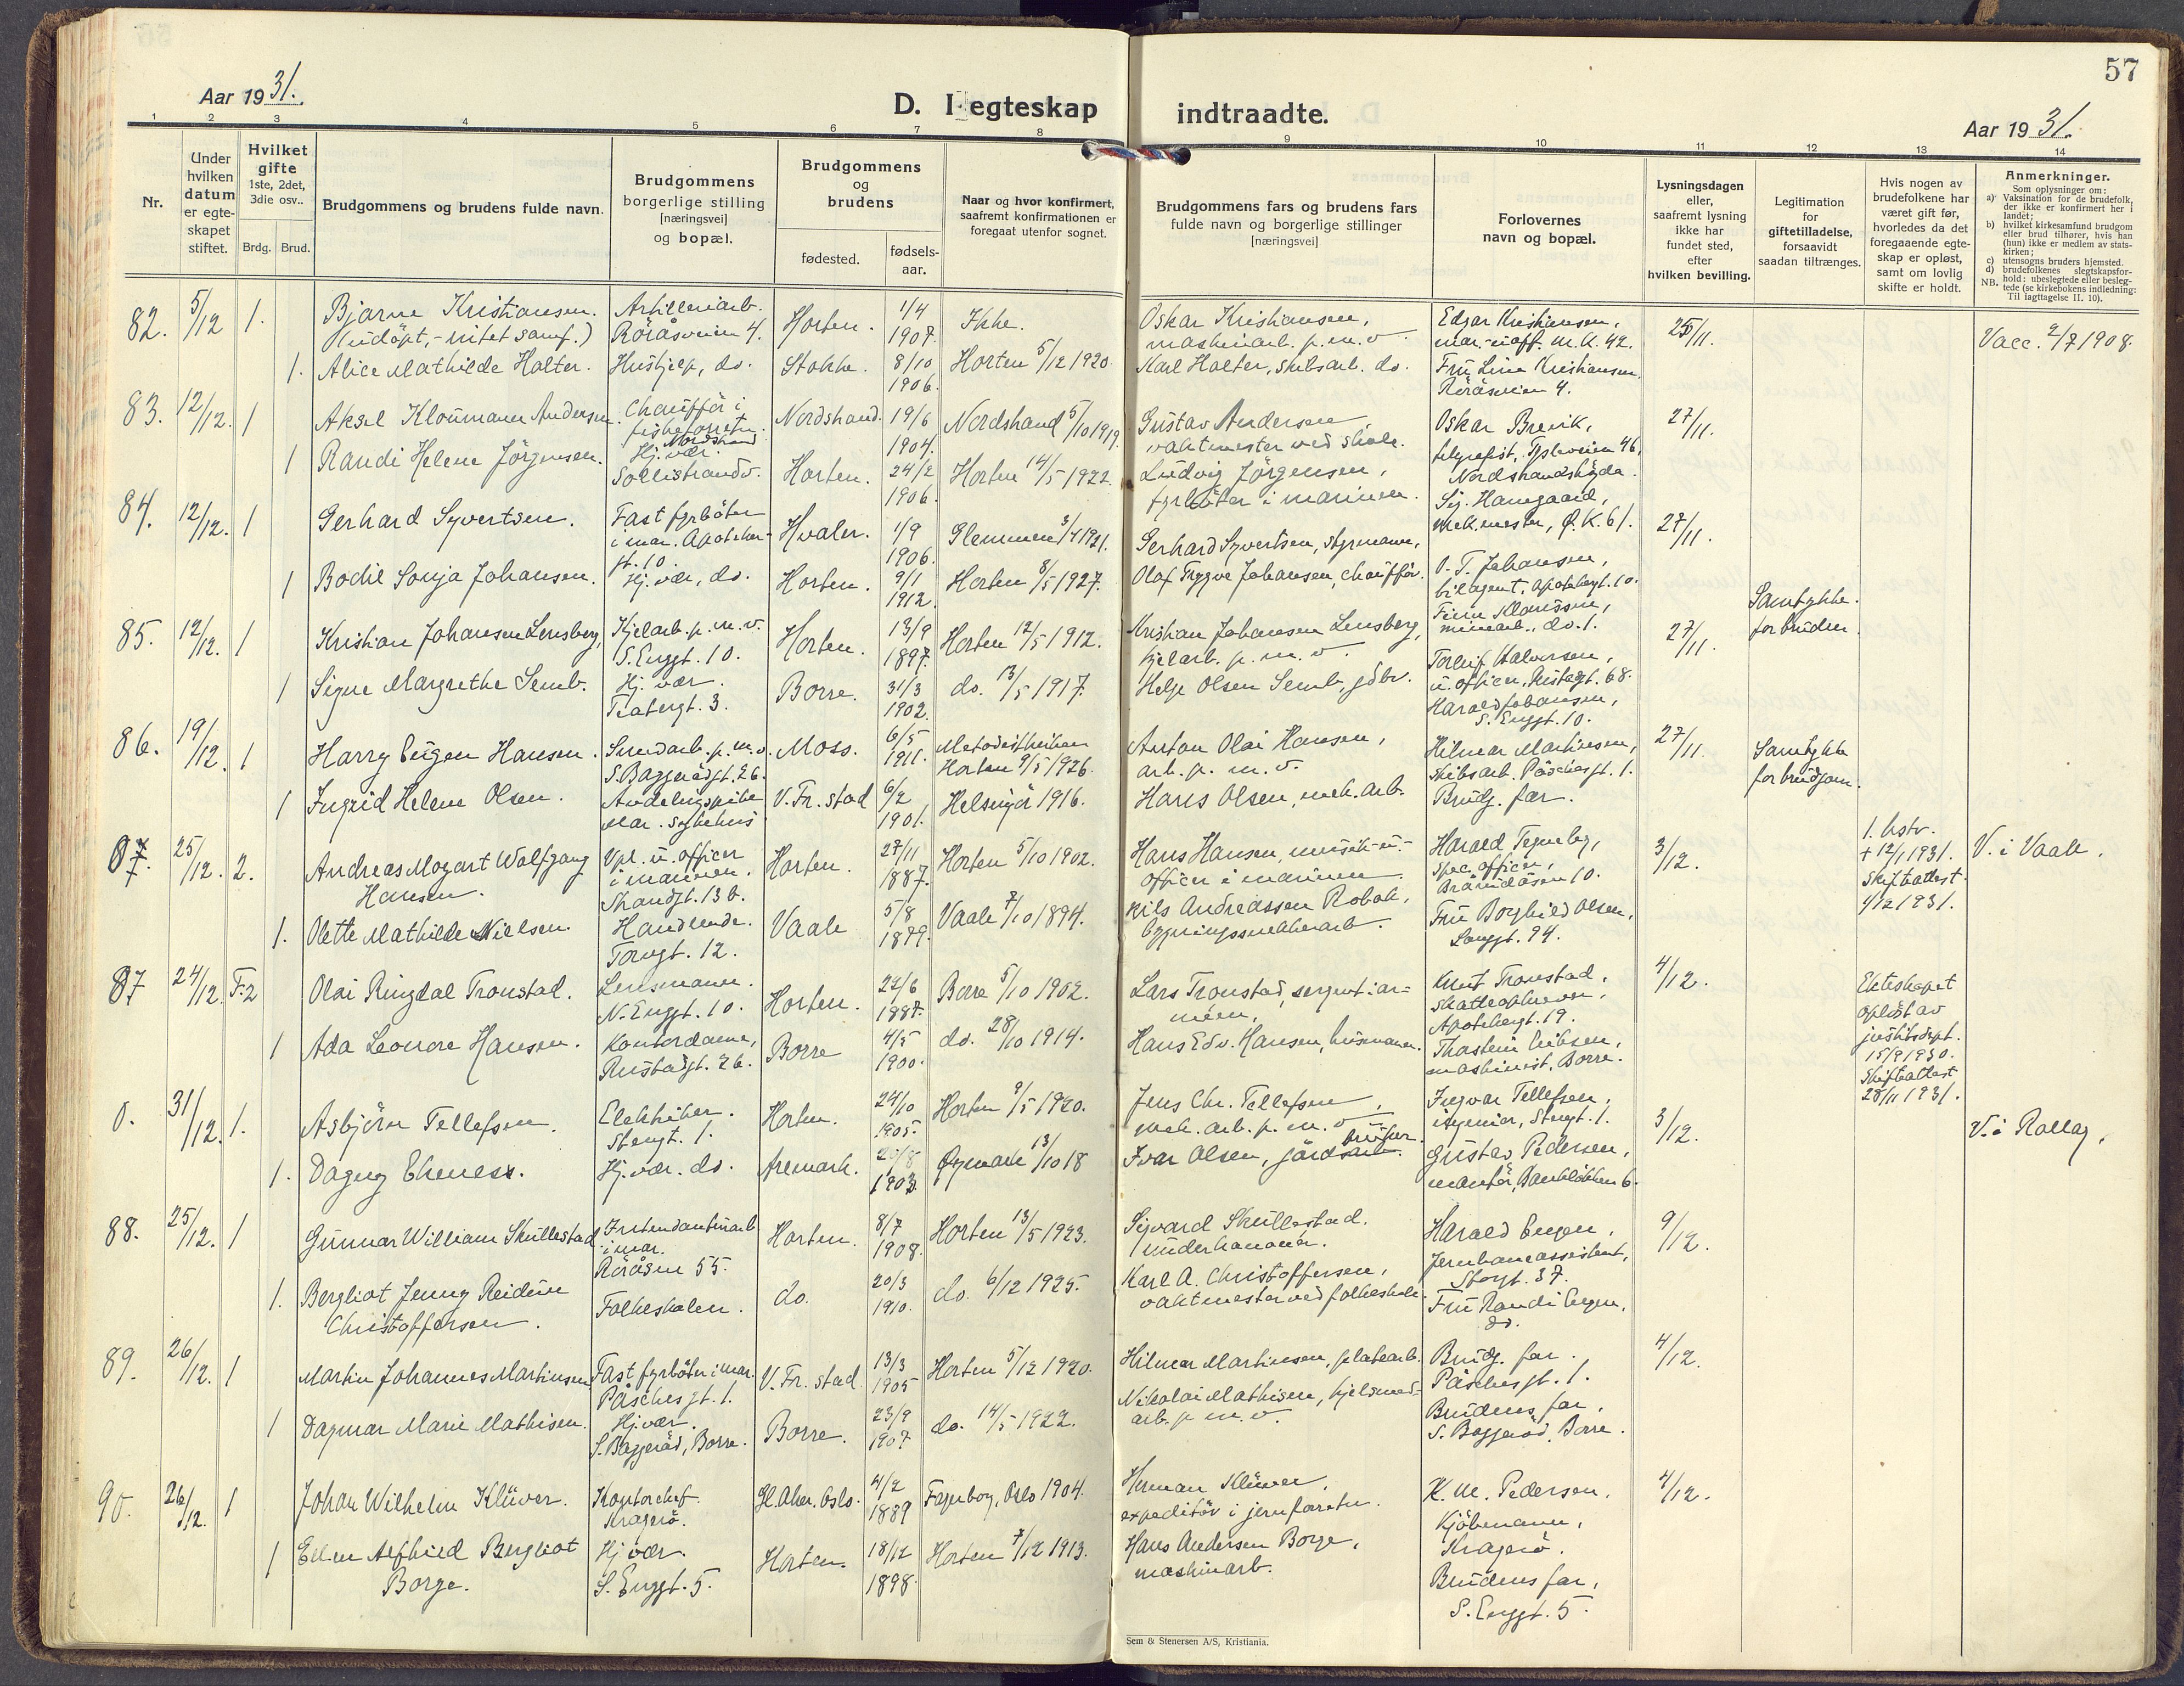 57
Aar 1931.
D. I egteskap indtraadte.
Aar 1931.
1 2 3 4 5 6 7 8 9 10 11 12 13 14
Nr.
Under hvilken datum er egte-skapet stiftet.
Hvilket gifte
1ste, 2det, 3die osv..
Brdg. Brud.
Brudgommens og brudens fulde navn.
Brudgommens borgerlige stilling [næringsvei] og bopæl.
Brudgommens og brudens
fødested.
fødsels-aar.
Naar og hvor konfirmert, saafremt konfirmationen er foregaat utenfor sognet.
Brudgommens fars og brudens fars
fulde navn og borgerlige stillinger
[næringsvei]
Forlovernes
navn og bopæl.
Lysningsdagen eller, saafremt lysning ikke har fundet sted, efter hvilken bevilling.
Legitimation for giftetilladelse, forsaavidt saadan tiltrænges.
Hvis nogen av brudefolkene har været gift før, hvorledes da det foregaaende egte-skap er opløst, samt om lovlig skifte er holdt.
Anmerkninger.
Som oplysninger om:
a) Vaksination for de brudefolk, der ikke er konfirmert her i landet;
b) hvilket kirkesamfund brudgom eller brud tilhører, hvis han (hun) ikke er medlem av stats-kirken;
c) utensogns bruders hjemsted.
d) brudefolkenes slegtskapsfor-hold: ubeslegtede eller besleg-tede (se kirkebokens indledning:
NB. Til iagttagelse II. 10).
82. 5/12 1. Bjarne Kristiansen. Artilleriarb. Horten. 1/4 1907. Ikke. Oskar Kristiansen, Edgar Kristiansen, 25/11. Vacc. 2/7 1908.
(udöpt, - intet samf.) Röråsveien 4. maskinarb. p.m.v. mar.-uoff. M.K. 42.
1. Alice Mathilde Holter. Hushjelp, do. Stokke. 8/10 1906. Horten 5/12 1920. Karl Holter, skibsarb. do. Fru Lina Kristiansen
Röråsveien 4.
83. 12/12. 1 Aksel Kloumann Andersen. Chaufför i Nordstrand. 19/6 1904. Nordstrand 5/10 1919. Gustav Andersen Oskar Brevik, 27/11.
fiskeforretn. Nordstrand vaktmester ved skole. telegrafist,
1 Randi Helene Jörgensen. Hj. vær. Horten. 24/2 1906. Horten 14/5 1922. Ludvig Jörgensen, Nordstrandshögda.
Sollistrandv. fyrböter i marinen. Sig. Haugaard,
mek.mester, Ø.K. 61.
84. 12/12. 1 Gerhard Syvertsen. Fast fyrböter Hvaler. 1/9 1906. Glemmen 3/4 1921. Gerhard Syvertsen, styrmann, 27/11.
i mar. Apoteker-gt. 10.
1 Bodil Sonja Johansen. Hj. vær, do. Horten. 9/1 1912. Horten 8/5 1927. Olaf Trygve Johansen, chaufför. O. T. Johansen, Samtykke for bruden.
bilagent. Apotekergt. 10.
85. 12/12. 1 Kristian Johansen Lensberg, Kjelarb. p.m.v. Horten. 13/9 1897. Horten 12/5 1912. Kristian Johansen Lensberg, 27/11.
S. Enggt. 10. kjelarb. p.m.v. Torleif Halvorsen,
1 Signe Margrethe Semb. Hj. vær. Borre. 31/3 1902. do. 13/5 1917. Helge Olsen Semb, gdbr. u. officer, Rustadgt. 68.
Teatergt. 3. Harald Johansen, S. Enggt. 10.
86. 19/12. 1 Harry Eugen Hansen. Smedarb. p.m.v. Moss. 6/5 1911. Metodistkirken Horten 9/5 1926. Anton Olai Hansen, Hilmar Martinsen, 27/11. Samtykke for brudgom.
S. Baggerödgt. 26. arb. p.m.v. skibsarb. Påschesgt. 1.
1 Ingrid Helene Olsen. Avdelingspike V. Fr. stad 6/2 1901. Helsingör 1916. Hans Olsen, mek. arb. Brudg. far.
Mar. sykehus
87. 25/12. 2. Andreas Mozart Wolfgang Hansen. Vpl. u. officer i marinen. Horten. 27/11 1887. Horten 5/10 1902. Hans Hansen, musik-u.-officer i marinen. Harald Tegneby, 3/12. 1. hstr. + 12/1 1931. Skifteattest 1/12 1931. V. i Vaale.
Strandgt. 13 b. spec. officer, Bråråsen 10.
1. Olette Mathilde Nielsen. Handlende. Vaale 5/8 1879. Vaale 7/10 1894. Nils Andreassen Robak, Fru Borghild Olsen,
Torvgt. 12. bygningssnekkerarb. Langgt. 94.
87 24/12. F.2 Olai Ringdal Tronstad. Lensmann. Horten. 22/6 1887. Borre 5/10 1902. Lars Tronstad, sergent i ar-meen, Knut Tronstad, 4/12. Ekteskapet opløst av justitsdept. 15/9 1930. Skifteattest 28/11 1931.
N. Enggt. 10. skatteopkrever, Apotekergt. 19.
1 Ada Leonore Hansen. Kontordame, Borre 4/5 1900. do. 28/10 1914. Hans Edv. Hansen, husmann. Thorstein Eriksen,
Rustadgt. 26. maskinist, Borre.
0. 31/12. 1. Asbjörn Tellefsen. Elektriker. Horten. 24/10 1905. Horten 9/5 1920. Jens Chr. Tellefsen, Ingvar Tellefsen, 3/12. V. i Rollag.
Stengt. 1. mek. arb. p.m.v. ingeniör, Stengt. 1.
1. Dagny Ekeness. Hj. vær. do. Aremark. 20/8 1903. Øymark 13/10 18 Ivar Olsen, gårdsbruker. Gustav Pedersen,
montör, Bankløkken 6.
88. 25/12. 1 Gunnar William Skullestad Intendanturarb. i mar. Horten. 8/7 1908. Horten 13/5 1923. Sigvard Skullestad. Harald Engen, 9/12.
Röråsen 55. underkanoner. Jernbaneassistent, Storgt. 37.
1. Bergliot Jenny Reidun Christoffersen. Folkeskolen. do. 20/3 1910. do. 6/12 1925. Karl A. Christoffersen, Fru Randi Engen, do.
vaktmester ved folkeskole.
89. 26/12. 1 Martin Johannes Martinsen Fast fyrböter i mar. V. Fr. stad 13/3 1905 Horten 5/12 1920. Hilmar Martinsen, platearb. Brudg. far. 4/12.
Påschesgt. 1. Påschesgt. 1.
1 Dagmar Marie Mathisen. Hj. vær. Borre. 23/9 1907 do. 14/5 1922. Nikolai Mathisen, kjelsmed-arb. p.m.v. Brudens far,
S. Baggeröd, Borre. S. Baggeröd, Borre.
90. 26/12. 1 Johan Wilhelm Klüver. Kontorchef Gl. Aker, Oslo. 4/2 1889 Fagerborg, Oslo 1904. Herman Klüver, K. M. Pedersen, 4/12.
Kragerö. expeditör i jernforretn. Kjöbmann, Kragerö.
1 Ellen Alfhild Bergliot Borge. Hj vær. Horten. 18/12 1898. Horten 7/12 1913. Hans Andersen Borge, Brudens far,
S. Enggt. 5. maskinarb. S. Enggt. 5.
Sem & Stenersen A/S, Kristiania.